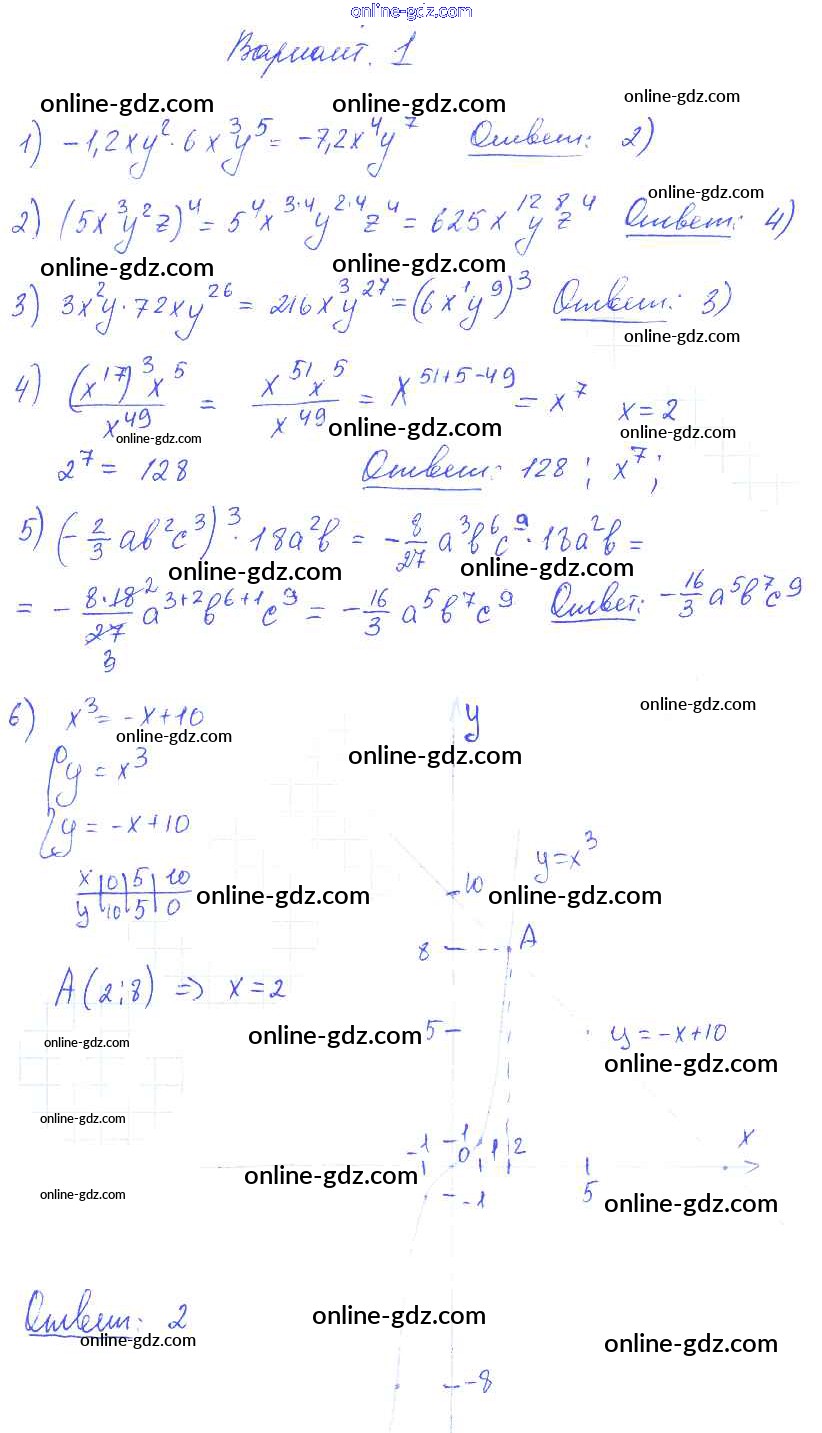 online-gdz.com
Вариант. 1
online-gdz.com online-gdz.com online-gdz.com
1) -1,2xy²·6x³y⁵= -7,2x⁴y⁷ Ответ: 2)
online-gdz.com
2) (5x³y²z)⁴= 5⁴x³·⁴y²·⁴z⁴ = 625x¹²y⁸z⁴ Ответ: 4)
online-gdz.com online-gdz.com
3) 3x²y·72xy²⁶ = 216x³y²⁷=(6x¹y⁹)³ Ответ: 3)
online-gdz.com
4) (x¹⁷)³x⁵/x⁴⁹ = x⁵¹x⁵/x⁴⁹ = x⁵¹⁺⁵⁻⁴⁹ = x⁷ x=2
online-gdz.com online-gdz.com online-gdz.com
2⁷= 128 Ответ: 128 ; x⁷;
5) (-2/3 ab²c³)³·18a²b = -8/27 a³b⁶c⁹·18a²b =
online-gdz.com online-gdz.com
= - 8·18²/27 3 a³⁺²b⁶⁺¹c⁹ = -16/3 a⁵b⁷c⁹ Ответ: -16/3 a⁵b⁷c⁹
online-gdz.com
6) x³= -x+10 y
online-gdz.com online-gdz.com
{y = x³
y= -x+10
y=x³
x 0 5 10
10
online-gdz.com online-gdz.com
y 10 5 0
8 A
A(2;8) => x=2
online-gdz.com online-gdz.com 5 y = -x+10
online-gdz.com
online-gdz.com
-1 1 0 1 2 x
online-gdz.com online-gdz.com
-1 5 online-gdz.com
Ответ: 2
online-gdz.com online-gdz.com online-gdz.com
-8